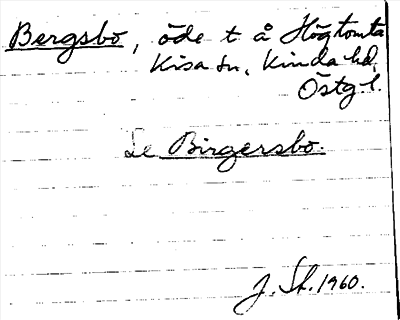 Bergsbo, öde t å Högtomta
Kisa sn, Kinda hd,
Östg. l.
Se Birgersbo.
J. St. 1960.